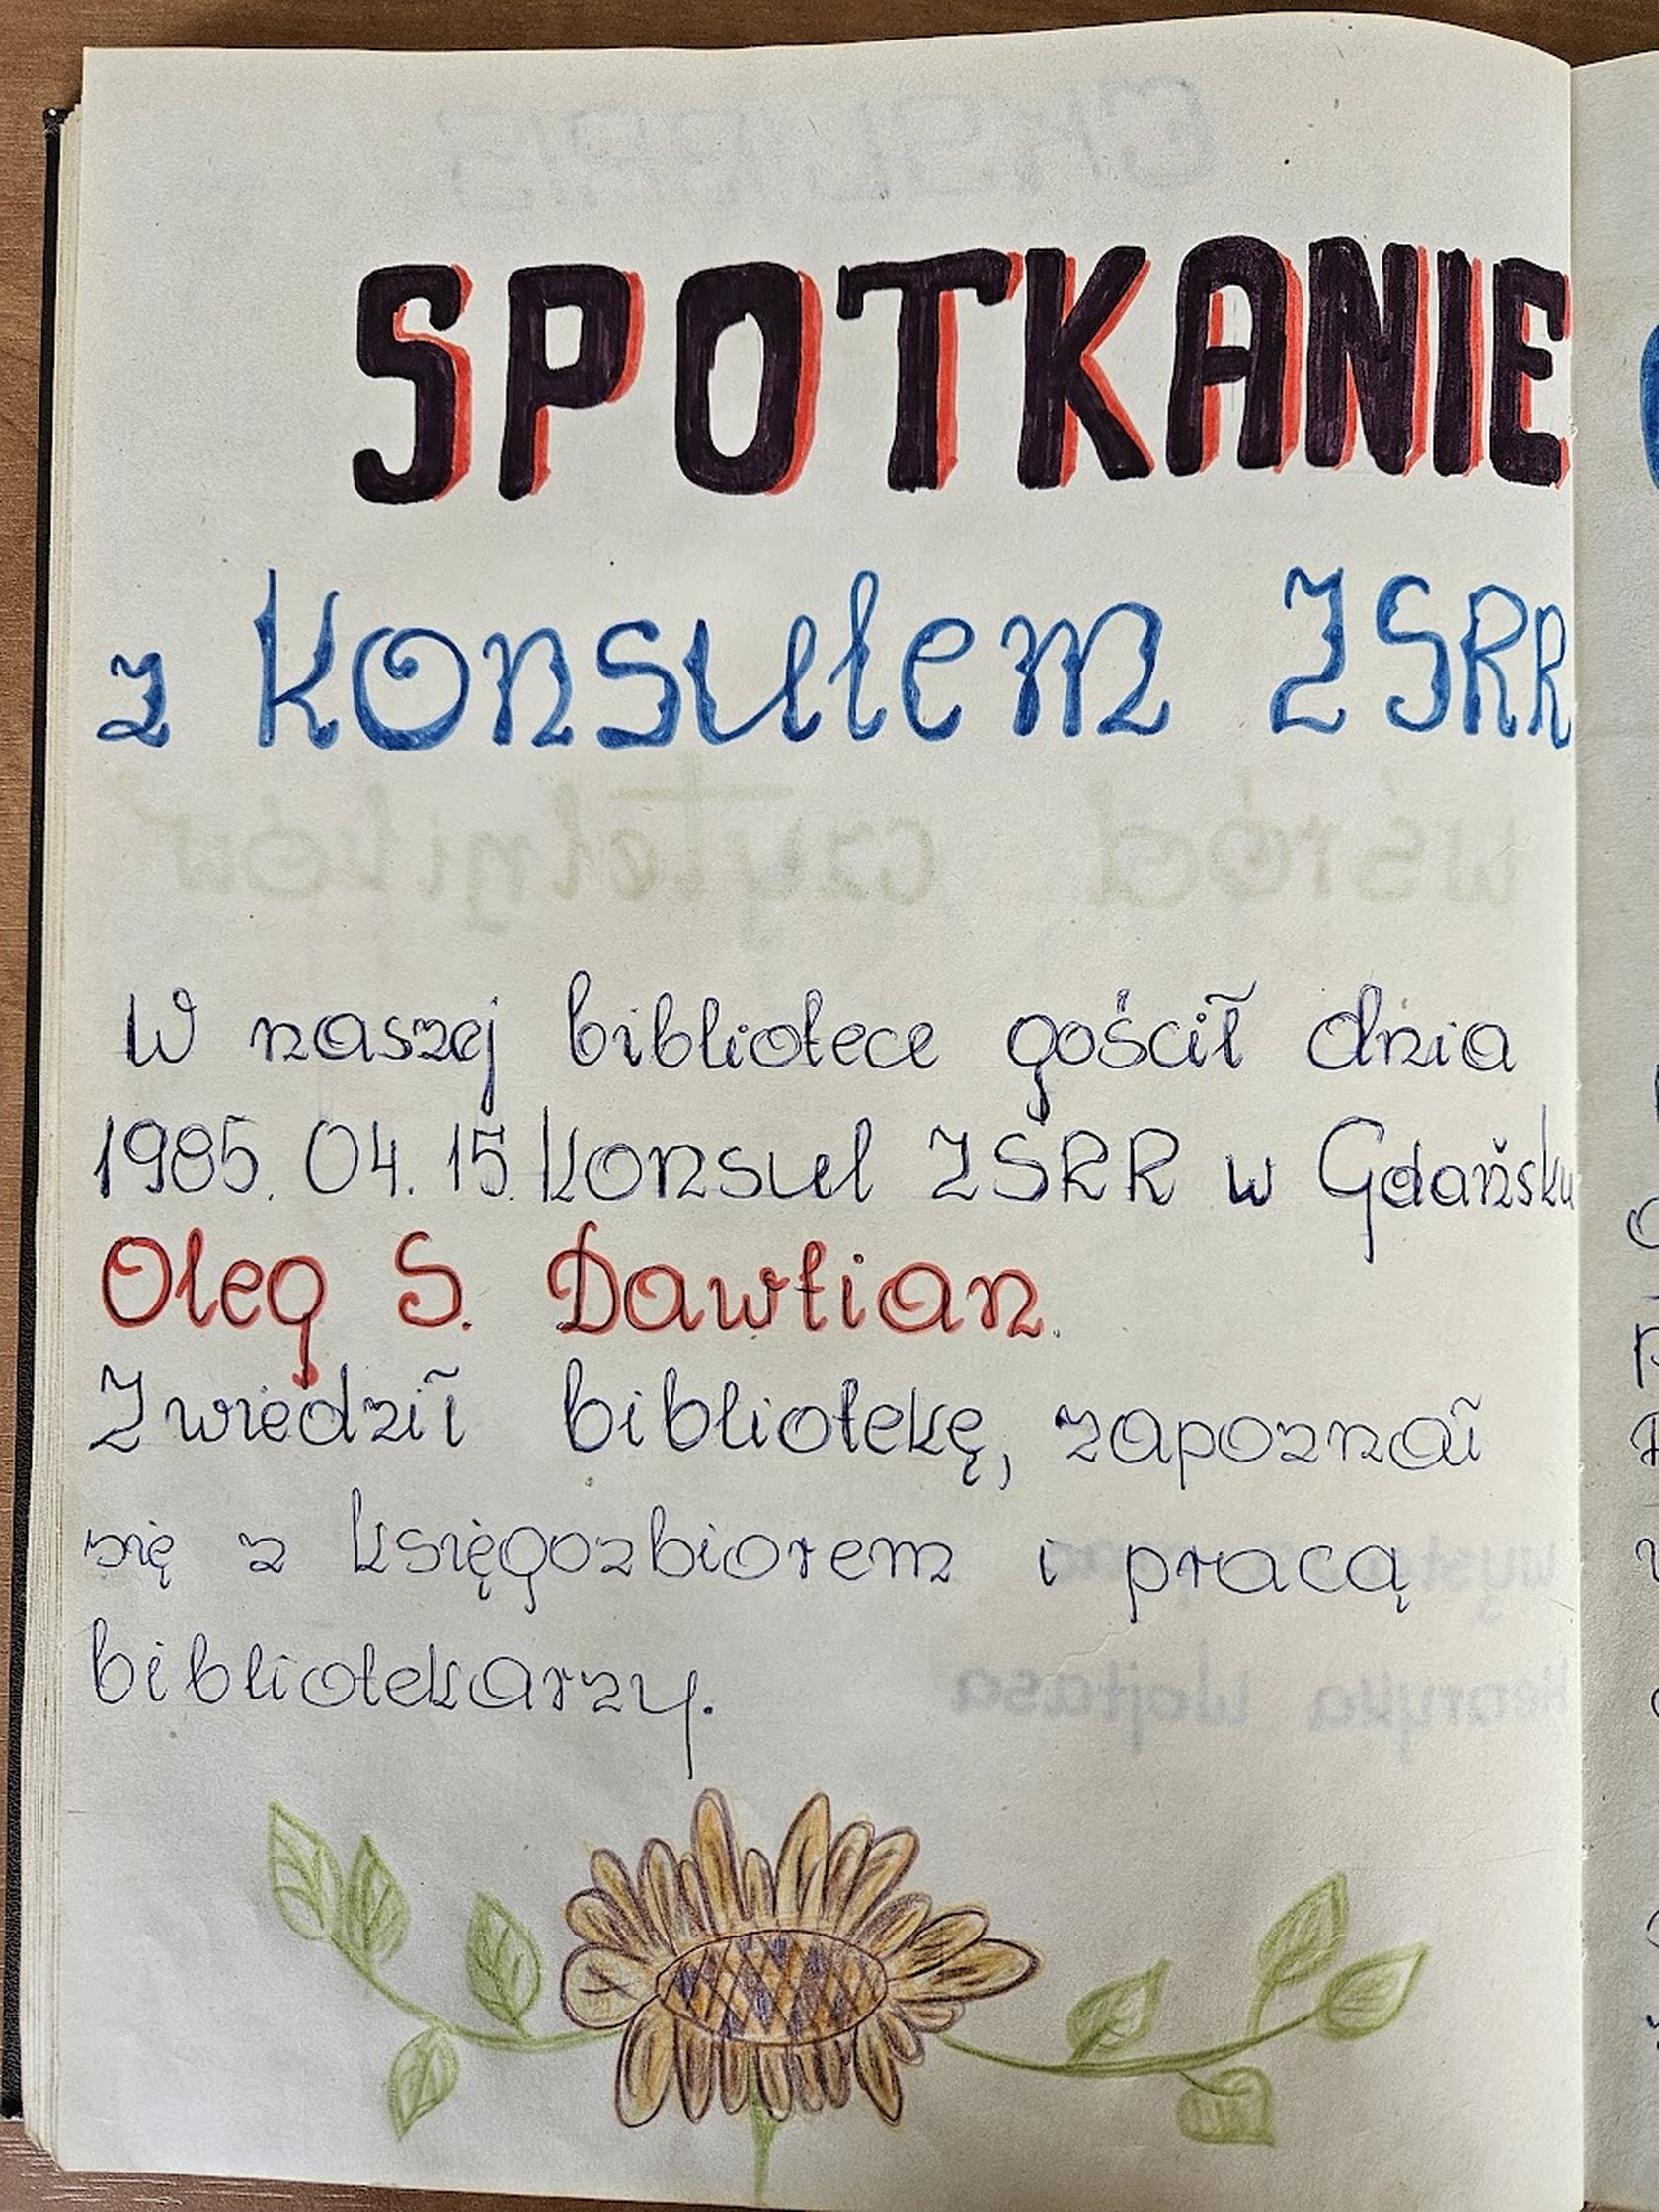 SPOTKANIE
z Konsulem ZSRR
W naszej bibliotece gościł dnia
1985.04.15. Konsul ZSRR w Gdańsku
Oleg S. Dawtian.
Zwiedził bibliotekę, zapoznał
się z księgozbiorem i pracą
bibliotekarzy.